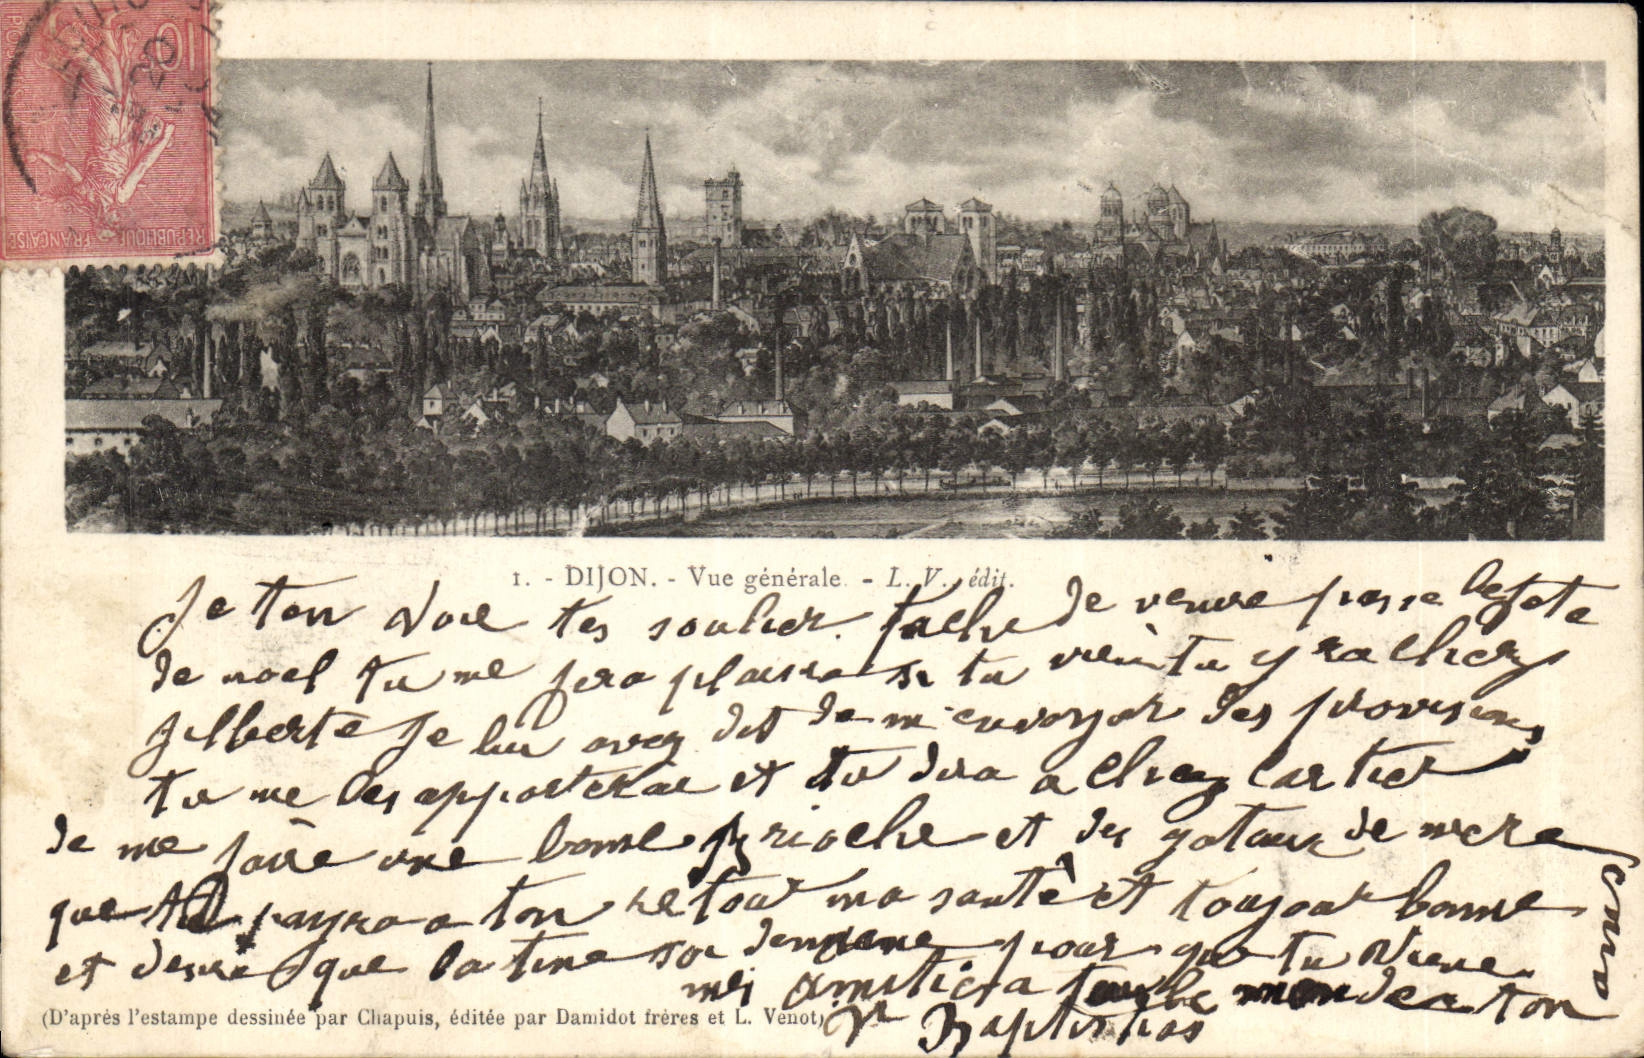 10
POSTES
REPUBLIQUE FRANÇAISE
1. - DIJON. - Vue générale - L. V., édit.
Je ton voie tes soulier. tache de venire passe les fete
de noel tu me fera plaisir si tu viein tu y ra cherz
Jilberte Je lui avez dit de m'envoyer des provisions
tu me les apporterae et tu dira a chez Cartier
de me faire une bonne brioche et des gataux de mere
que tu payra a ton retour ma santé et toujour bonne
et desire que la tiene soi de meme pour que tu viene
mes amitiera tache mender ton
Vr Baptistias
(D'après l'estampe dessinée par Chapuis, éditée par Damidot frères et L. Venot)